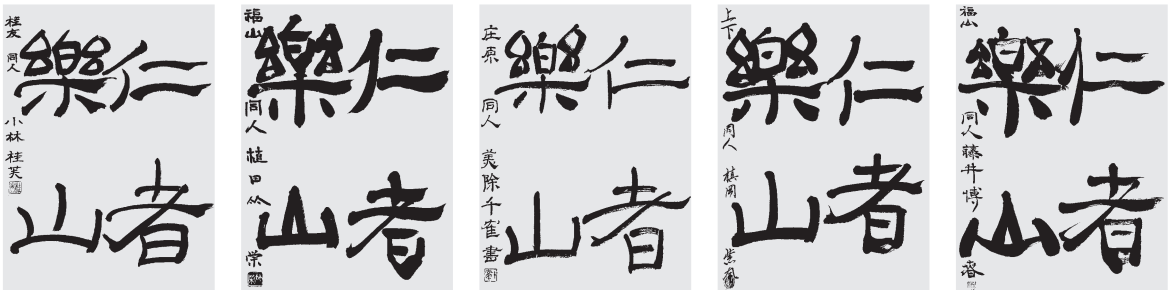 仁者
樂山
桂友 同人 小林 桂芙
仁者
樂山
福山 同人 植田 栄
仁者
樂山
庄原 同人 千雀書
仁者
樂山
上下 同人
仁者
樂山
福山 同人 藤井博